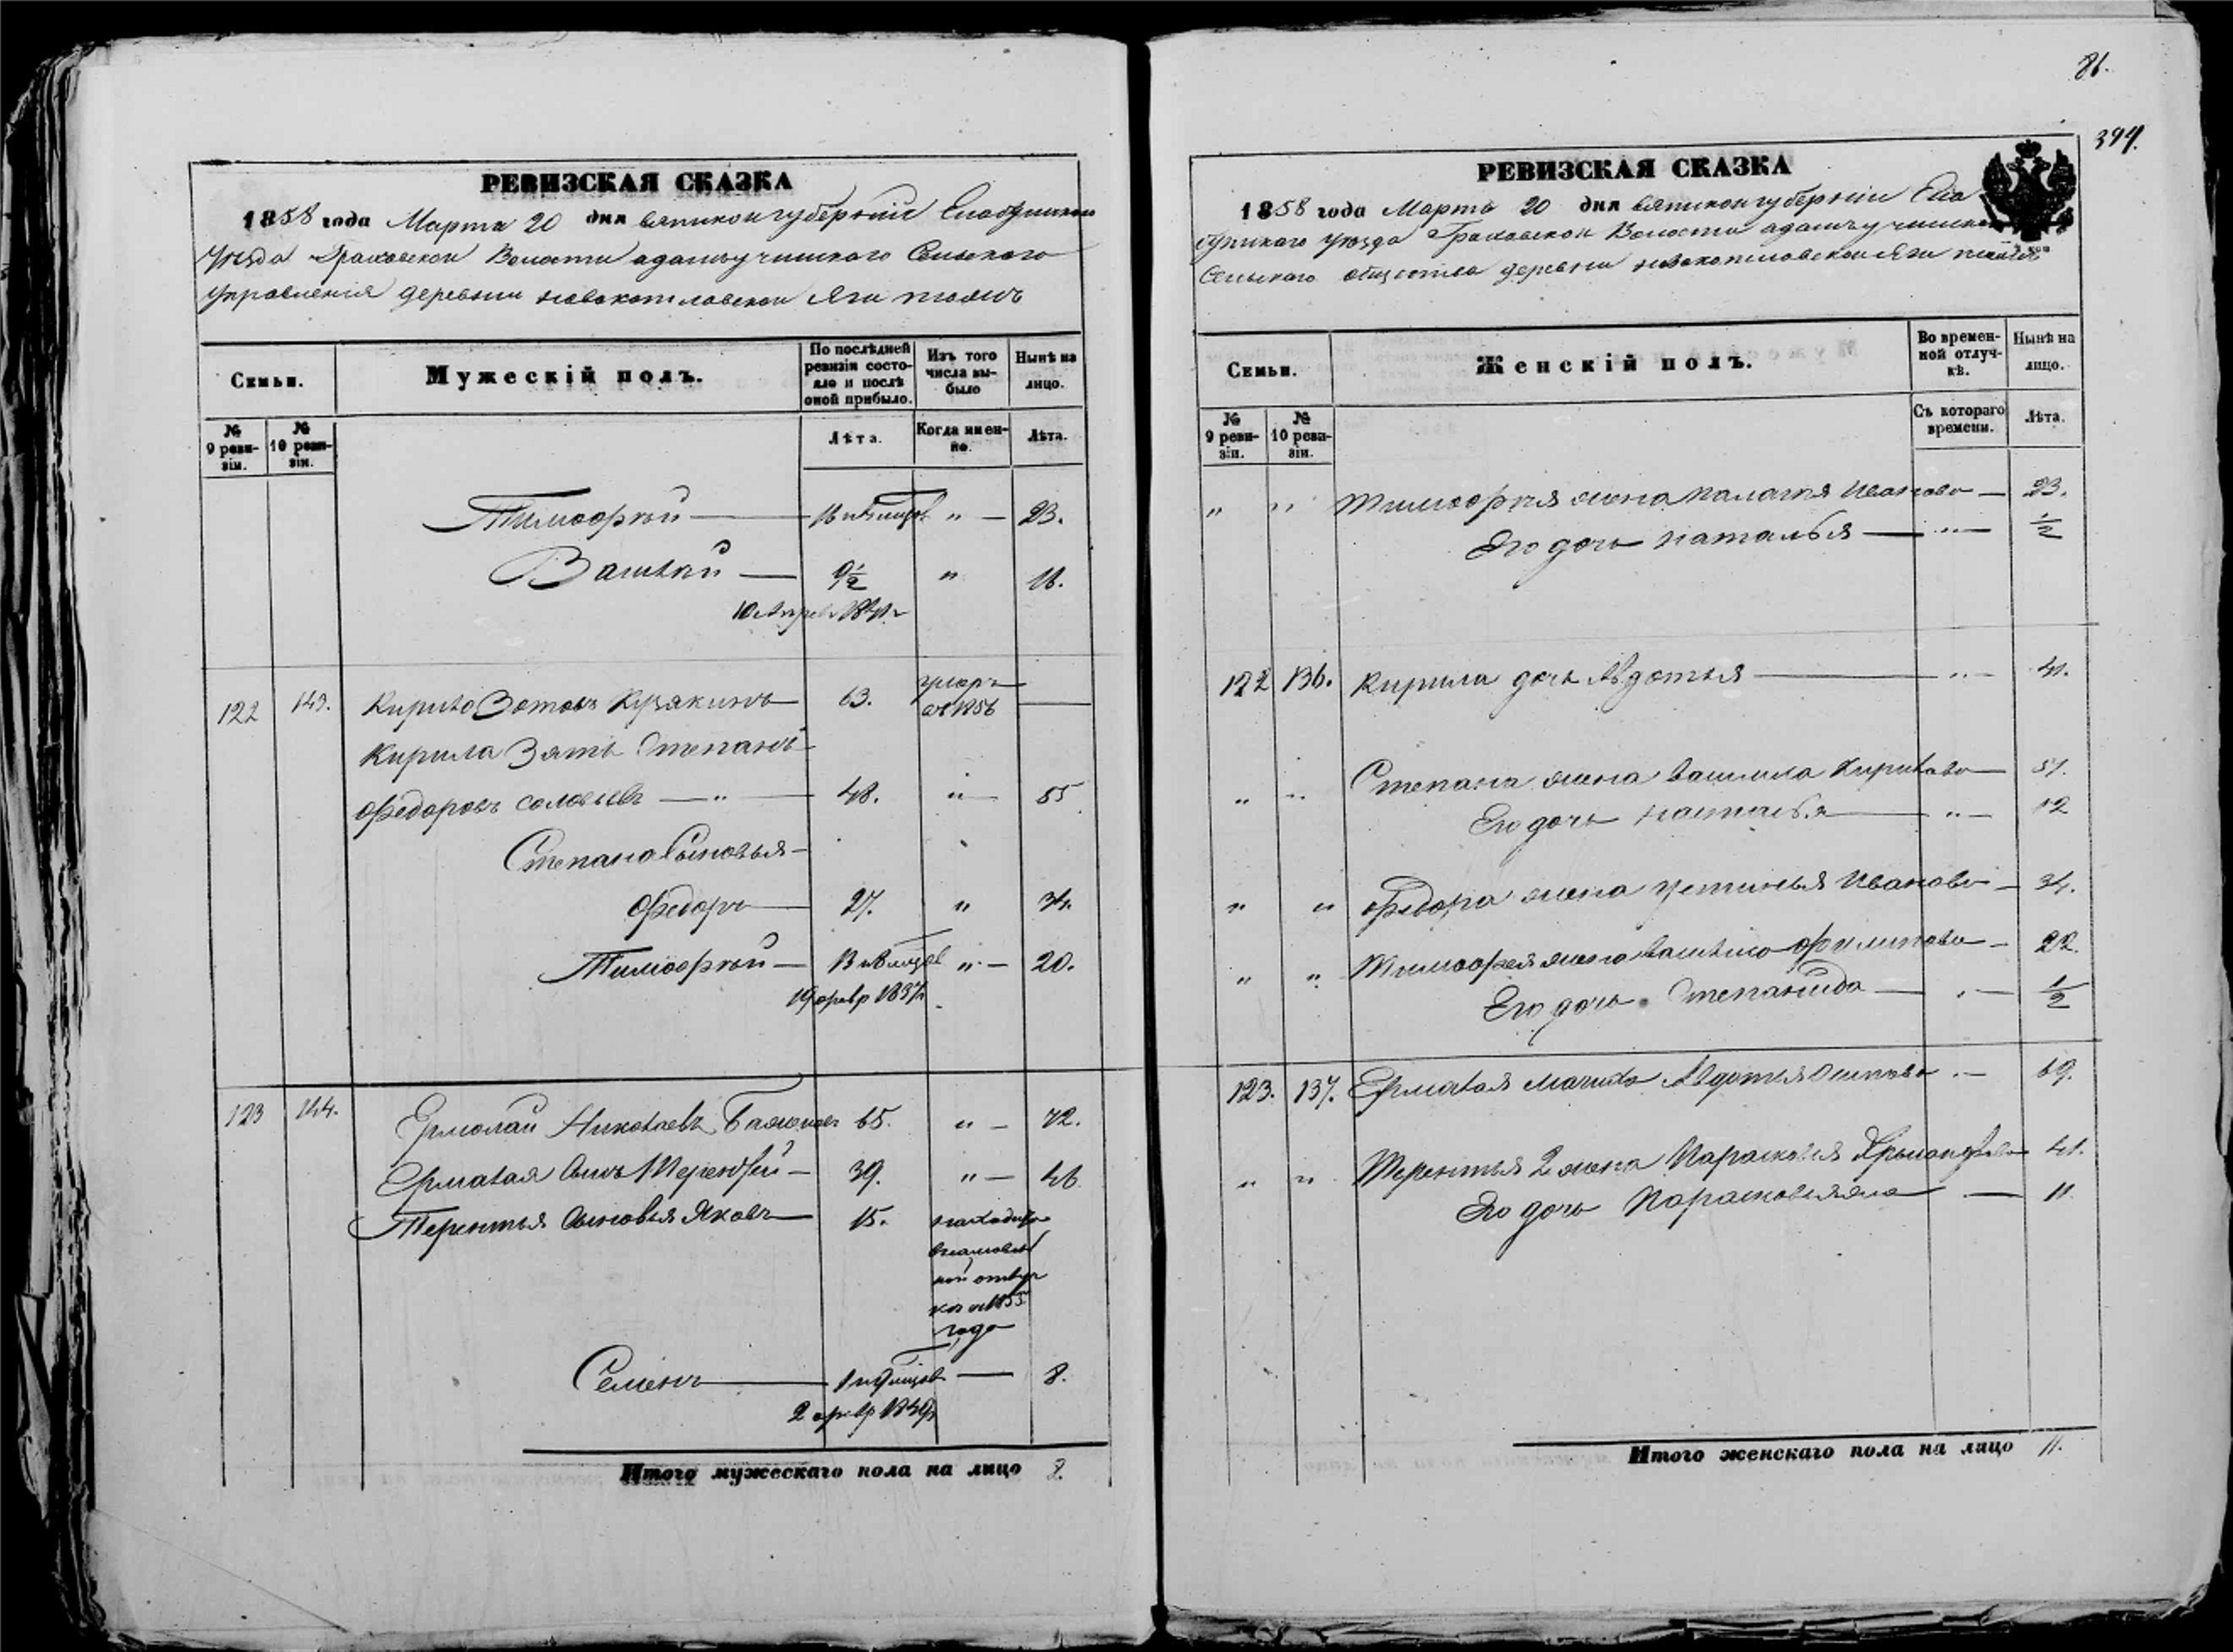 РЕВИЗСКАЯ СКАЗКА
1858 года Марта 20 дня вятской губернии Елабужскаго
Уезда Граховской Волости адамъучинского Сельского
Управления деревни новокотловской Яги тожъ
Семьи.
Мужескій полъ.
По послѣдней ревизіи состояло и послѣ оной прибыло.
Изъ того числа выбыло
Нынѣ на лицо.
№ 9 ревизіи.
№ 10 ревизіи.
Лѣта.
Когда именно.
Лѣта.
Тимофѣй — 16 и 4 месяцов " — 23.
Василий — 9½ " 16.
122 143. Кирило Зотовъ Кузякинъ 63. умеръ въ 1856 —
Кирила Зять Степанъ
Федоровъ соловьевъ — " — 48. " — 55
Степана Сыновья —
Федоръ — 27. " 34.
Тимофѣй — 13 и 1 месяцов " — 20.
19 февр 1837
123 144. Ермолай Николаевъ 65. " — 72.
Ермалая Сынъ Терентѣй — 39. " — 46
Терентья Сыновья Яковъ — 15. находится
1855
года
Семенъ — 1 и месяцов — 8.
2 февр 1849
Итого мужескаго пола на лицо 8.
86.
394.
РЕВИЗСКАЯ СКАЗКА
1858 года Марта 20 дня вятской губернии Ела
бужскаго уезда Граховской Волости адамъучинской
Сельскаго общества деревни новокотловской Яги тожъ
Семьи.
Женскій полъ.
Во временной отлучкѣ.
Нынѣ на лицо.
№ 9 ревизіи.
№ 10 ревизіи.
Съ котораго времени.
Лѣта.
" " Тимофѣя жена палагея Иванова — 23.
Его дочь наталья — " — ½
122 136. Кирила дочь Авдотья — " — 41.
" " Степана жена василиса Кирилова — 51.
Его дочь наталья — " — 12
" " Федора жена устинья Иванова — 34.
" " Тимофея жена василиса Филипова — 22
Его дочь Степанида — " — ½
123. 137. Ермалая мачиха Авдотья Осипова " — 69.
" " Терентья 2 жена Парасковья 41.
Его дочь Парасковья — 11.
Итого женскаго пола на лицо 11.